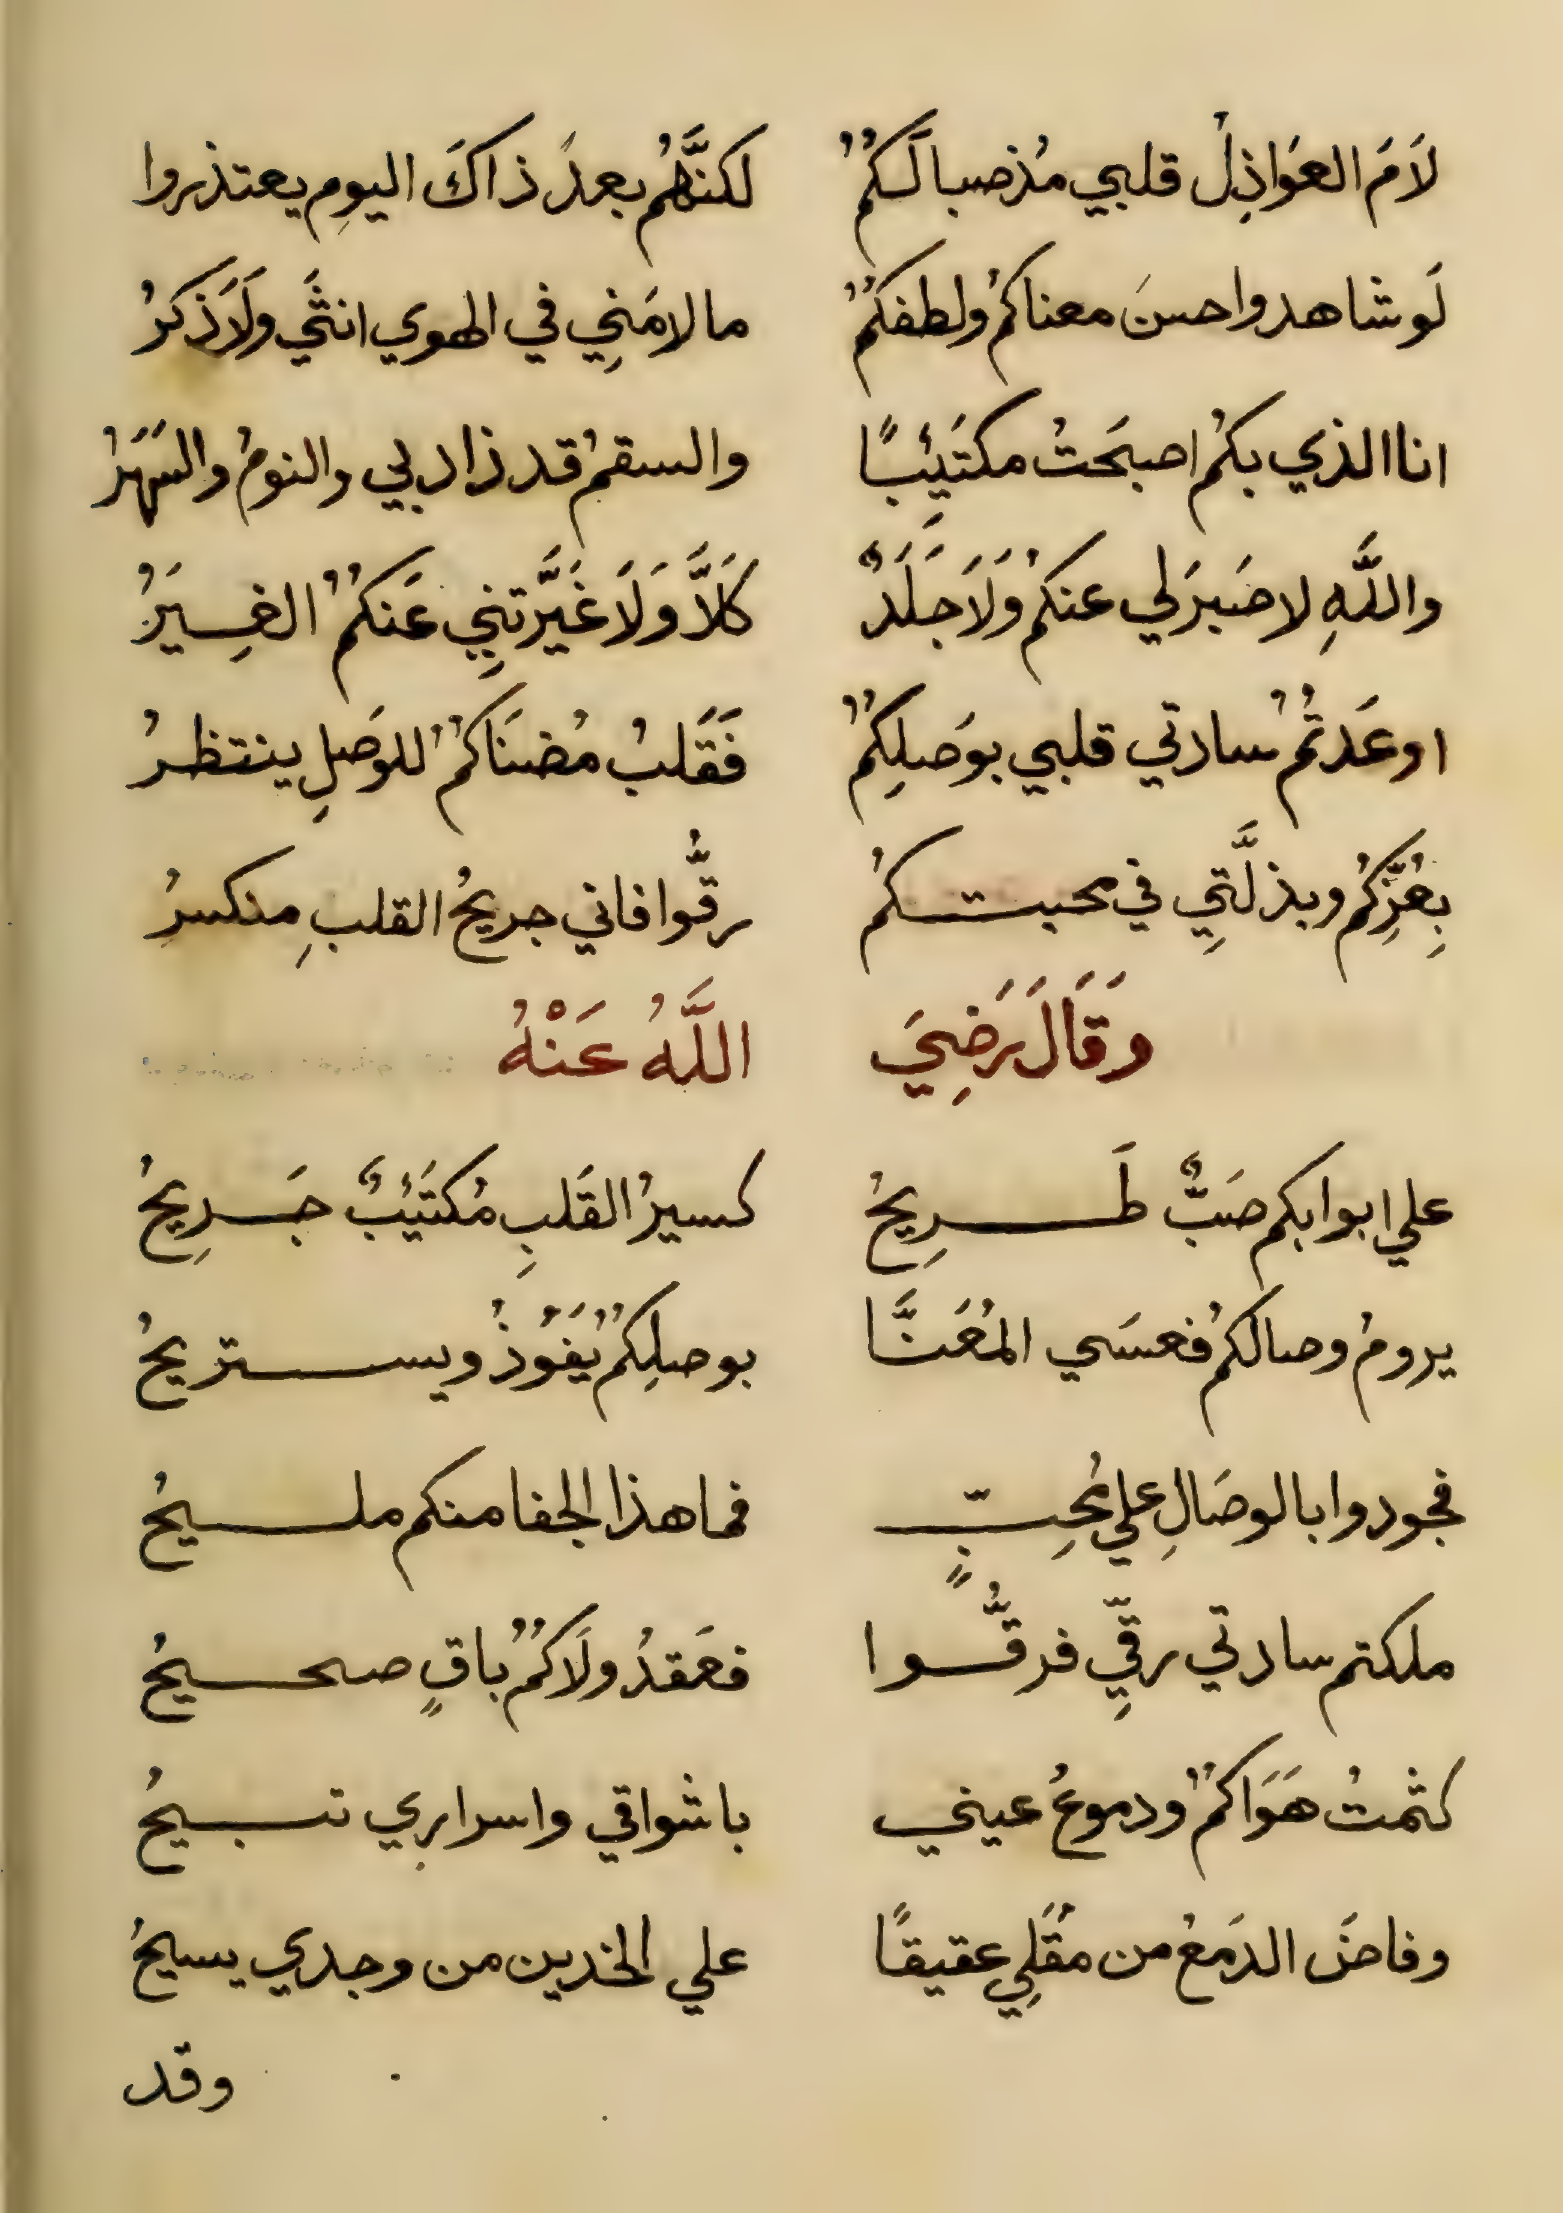 لَامَ العَوَاذِلْ قلبي مُذ صبا لَكُمُ لكنَّهُم بعدَ ذاكَ اليومِ يعتذروا
لَو شاهدوا حسنَ معناكمُ ولطفكُمُ ما لامَنِي في الهوي انثَي ولَا ذَكَرُ
انا الذي بكمُ اصبَحتُ مكتَئِبًا والسقمُ قد زاد بي والنومُ والسَهَرُ
واللَّهِ لا صَبرَ لي عنكمُ ولَا جَلَدٌ كَلَّا وَلَا غَيَّرَتنِي عَنكُمُ الغِيَرُ
اوعَدتُمُ سادتي قلبي بوَصلِكُمُ فَقَلبُ مُضنَاكمُ للوَصلِ ينتظرُ
بِعُزِّكُم وبذلَّتِي في محبتكُم رقُّوا فاني جريحُ القلبِ منكسرُ
وَقَالَ رَضِيَ اللَّهُ عَنْهُ
علي ابوابكم صَبٌّ طَرِيحُ كسيرُ القَلبِ مُكتَئِبٌ جَرِيحُ
يرومُ وصالكمُ فعسَي المُعَنَّا بوصلِكُمُ يَفَوُذُ ويستريحُ
فجودوا بالوصَالِ علي مُحِبٍّ فما هذا الجفا منكم مليحُ
ملكتم سادتي رقِّي فرقُّوا فعَقدُ ولَاكُمُ باقٍ صحيحُ
كتمتُ هَوَاكمُ ودموعُ عيني باشواقي واسراري تبيحُ
وفاضَ الدَمعُ من مُقَلِي عقيقًا علي الخدين من وجدي يسيحُ
وقد